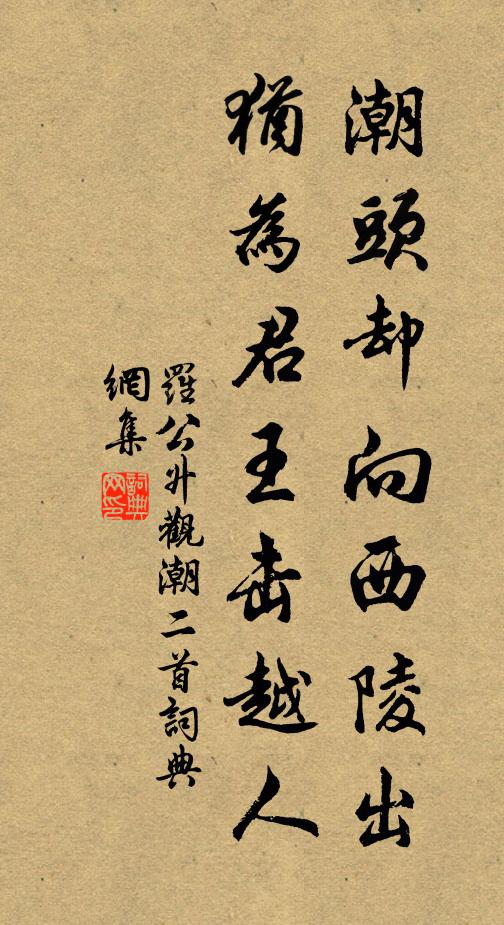 潮頭却向西陵出
猶為君王击越人
羅公升觀潮二首詞典
網集
詞典
网印